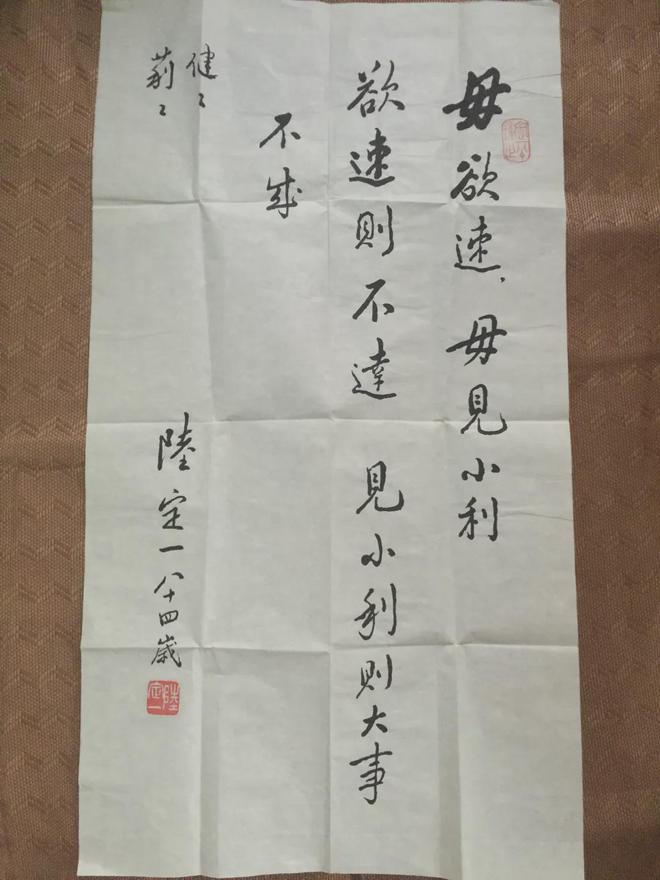 毋欲速，毋見小利
欲速則不達 見小利則大事
不成
健〻
莉〻
陸定一八十四歲
陸定一